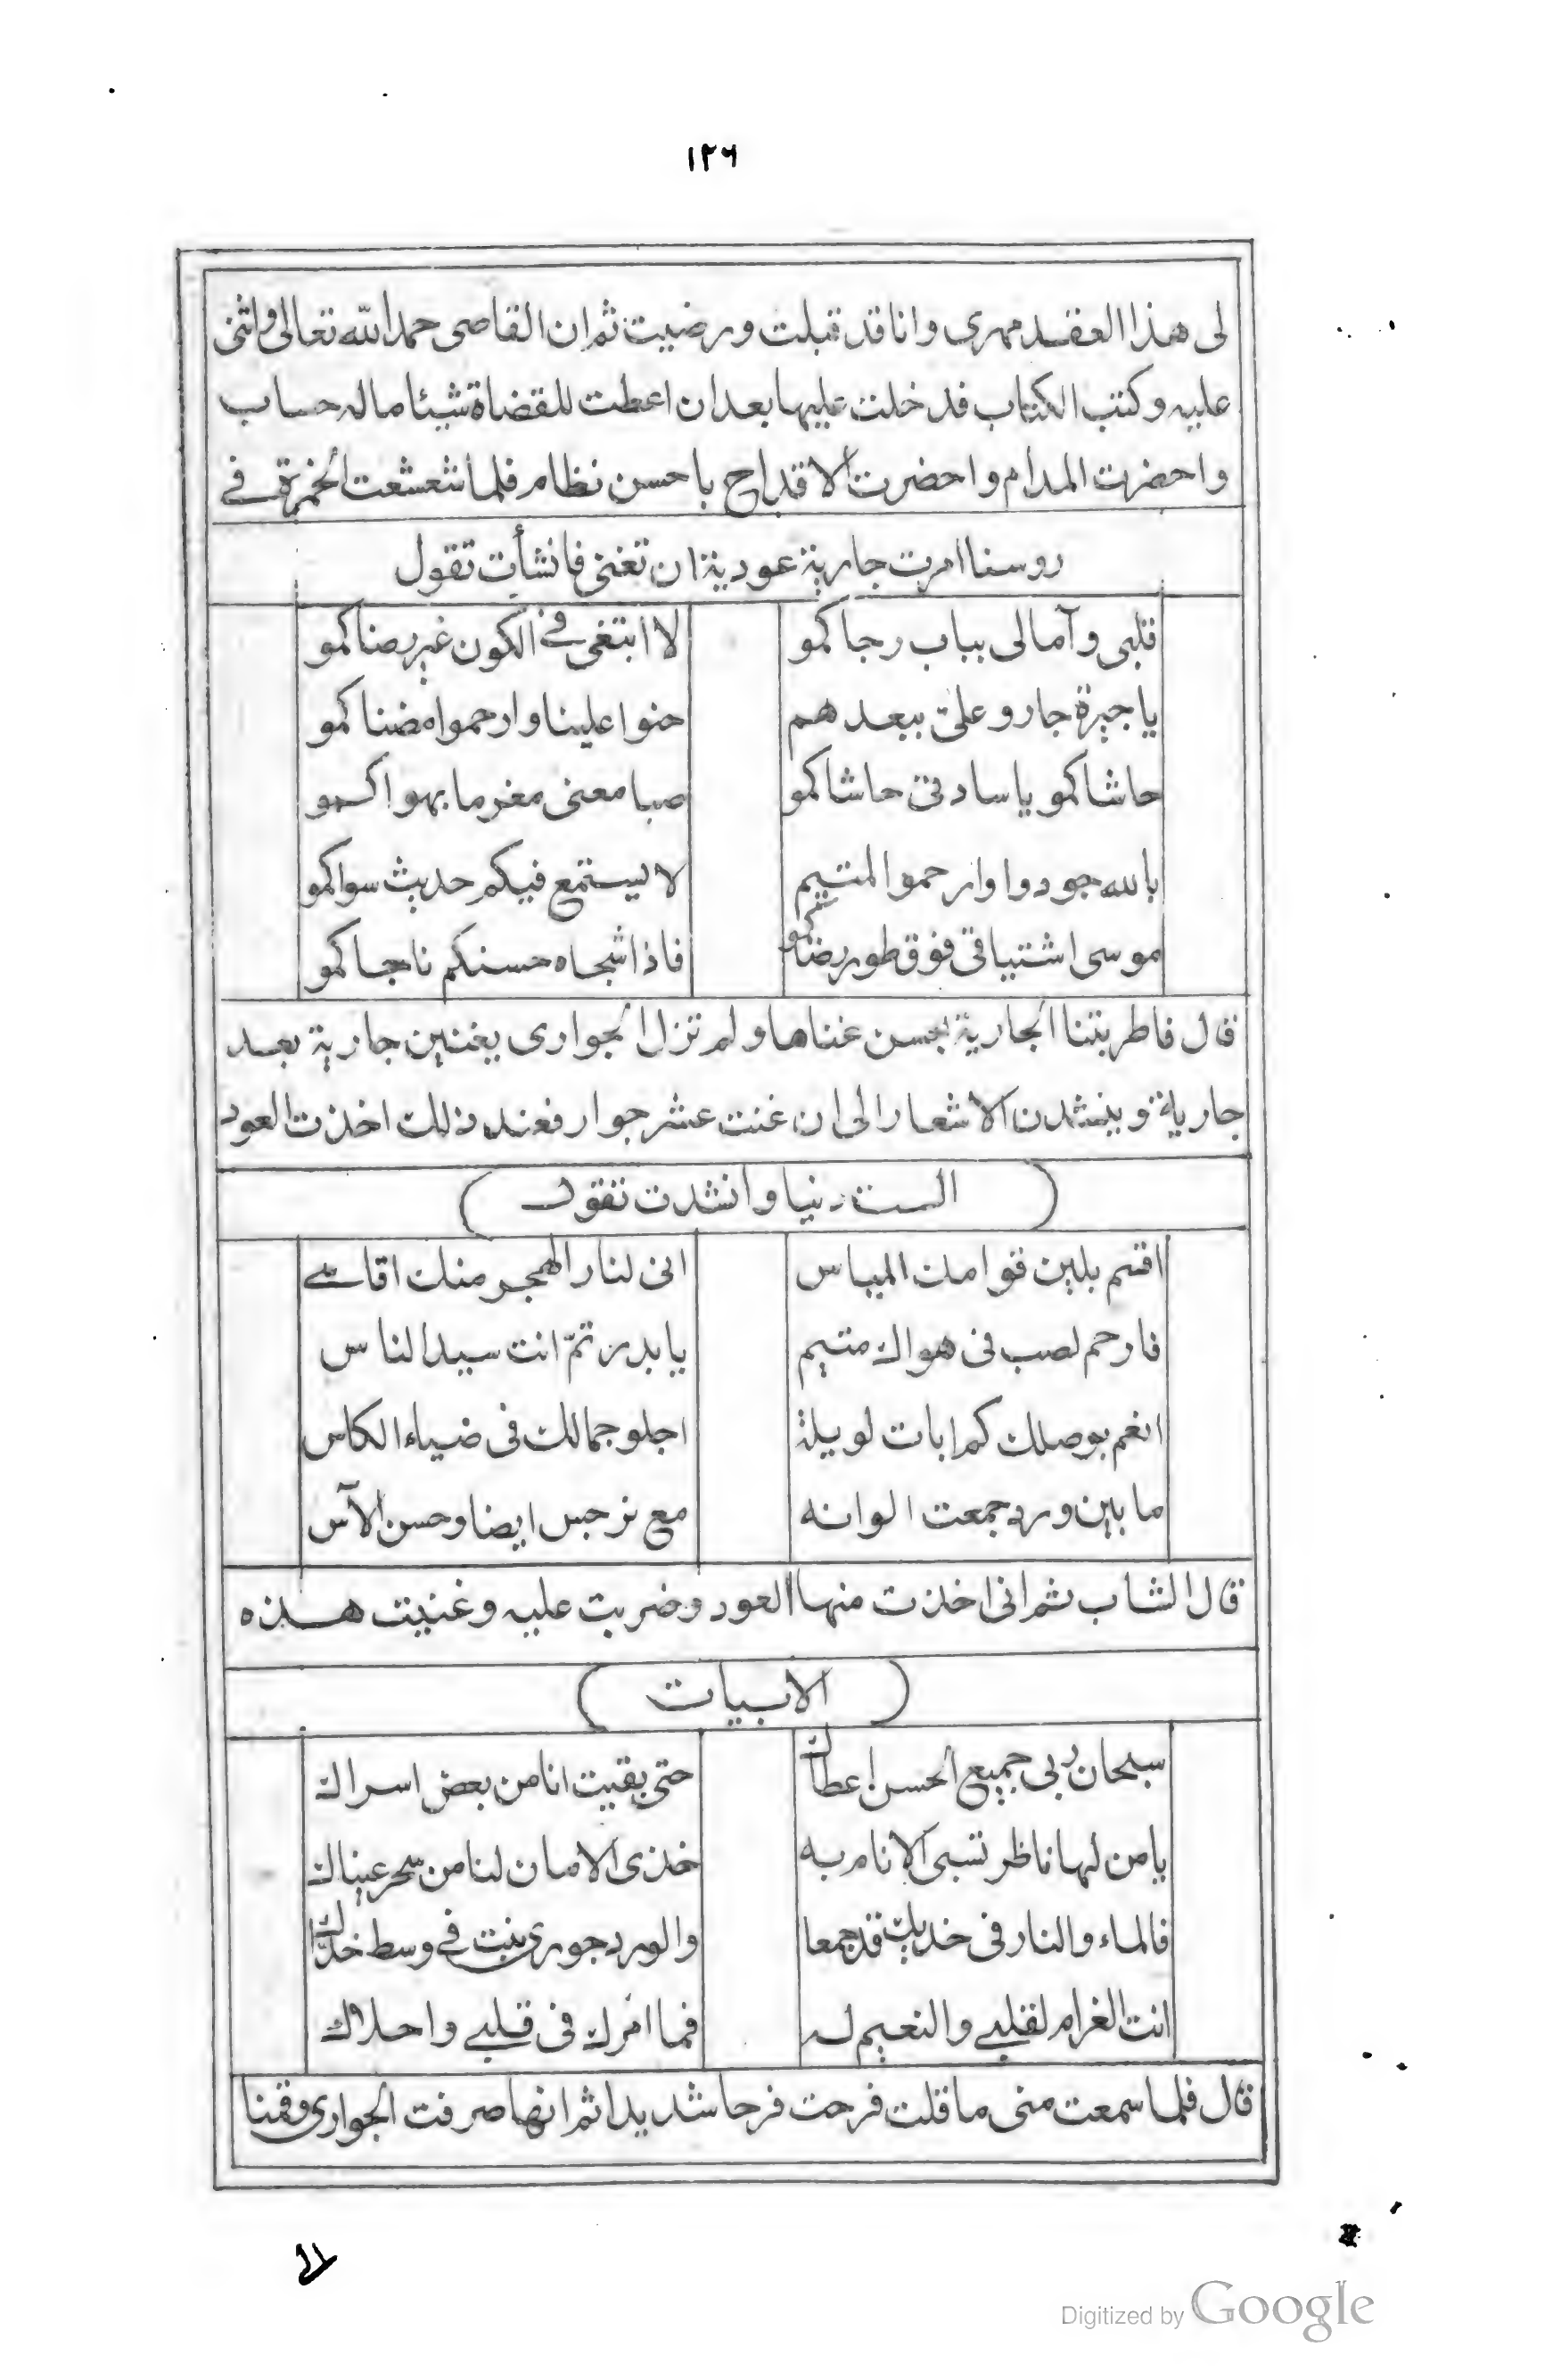 ١٢٦
لى هذا العقد مهرى وانا قد قبلت ورضيت ثم ان القاصى حمد الله تعالى واثنى
عليه وكتب الكتاب فدخلت عليها بعد ان اعطت للقضاة شيئا ماله حساب
واحضرت المدام واحضرت الاقداح باحسن نظام فلما شعشعت الخمرة فى
روسنا امرت جارية عودية ان تغنى فانشأت تقول
قلبى وآمالى بباب رجاكمو لا ابتغى فى الكون غير رضاكمو
يا جيرة جارو على ببعدهم حنوا علينا وارحموا مضناكمو
حاشاكمو يا سادتى حاشاكمو صبا معنى مغرما بهواكمو
بالله جودوا وارحموا لمتيم لا يستمع فيكم حديث سواكمو
موسى اشتياقى فوق طور رضاكمو فاذا شجاه حسنكم ناجاكمو
قال فاطربتنا الجارية بحسن غناها ولم تزل الجوارى يغنين جارية بعد
جارية وينشدن الاشعار الى ان غنت عشر جوار فعند ذلك اخذت العود
( الست دنيا وانشدت تقول )
اقسم بلين قوامك المياس انى لنار الهجر منك اقاسى
فارحم لصب فى هواك متيم يا بدر تمّ انت سيد الناس
انعم بوصلك كم ابات لويلة اجلو جمالك فى ضياء الكاس
ما بين ورد جمعت الوانه مع نرجس ايضا وحسن الآس
قال الشاب ثم انى اخذت منها العود وضربت عليه وغنيت هذه
( الابيات )
سبحان ربى جميع الحسن اعطاك حتى بقيت انا من بعض اسراك
يا من لها ناظر تسبى الانام به خذى الامان لنا من سحر عيناك
فالماء والنار فى خديك قد جمعا والورد جورى ينبت فى وسط خدّاك
انت الغرام لقلبى والنعيم له فما امرك فى قلبى واحلاك
قال فلما سمعت منى ما قلت فرحت فرحا شديدا ثم انها صرفت الجوارى وقمنا
Digitized by Google